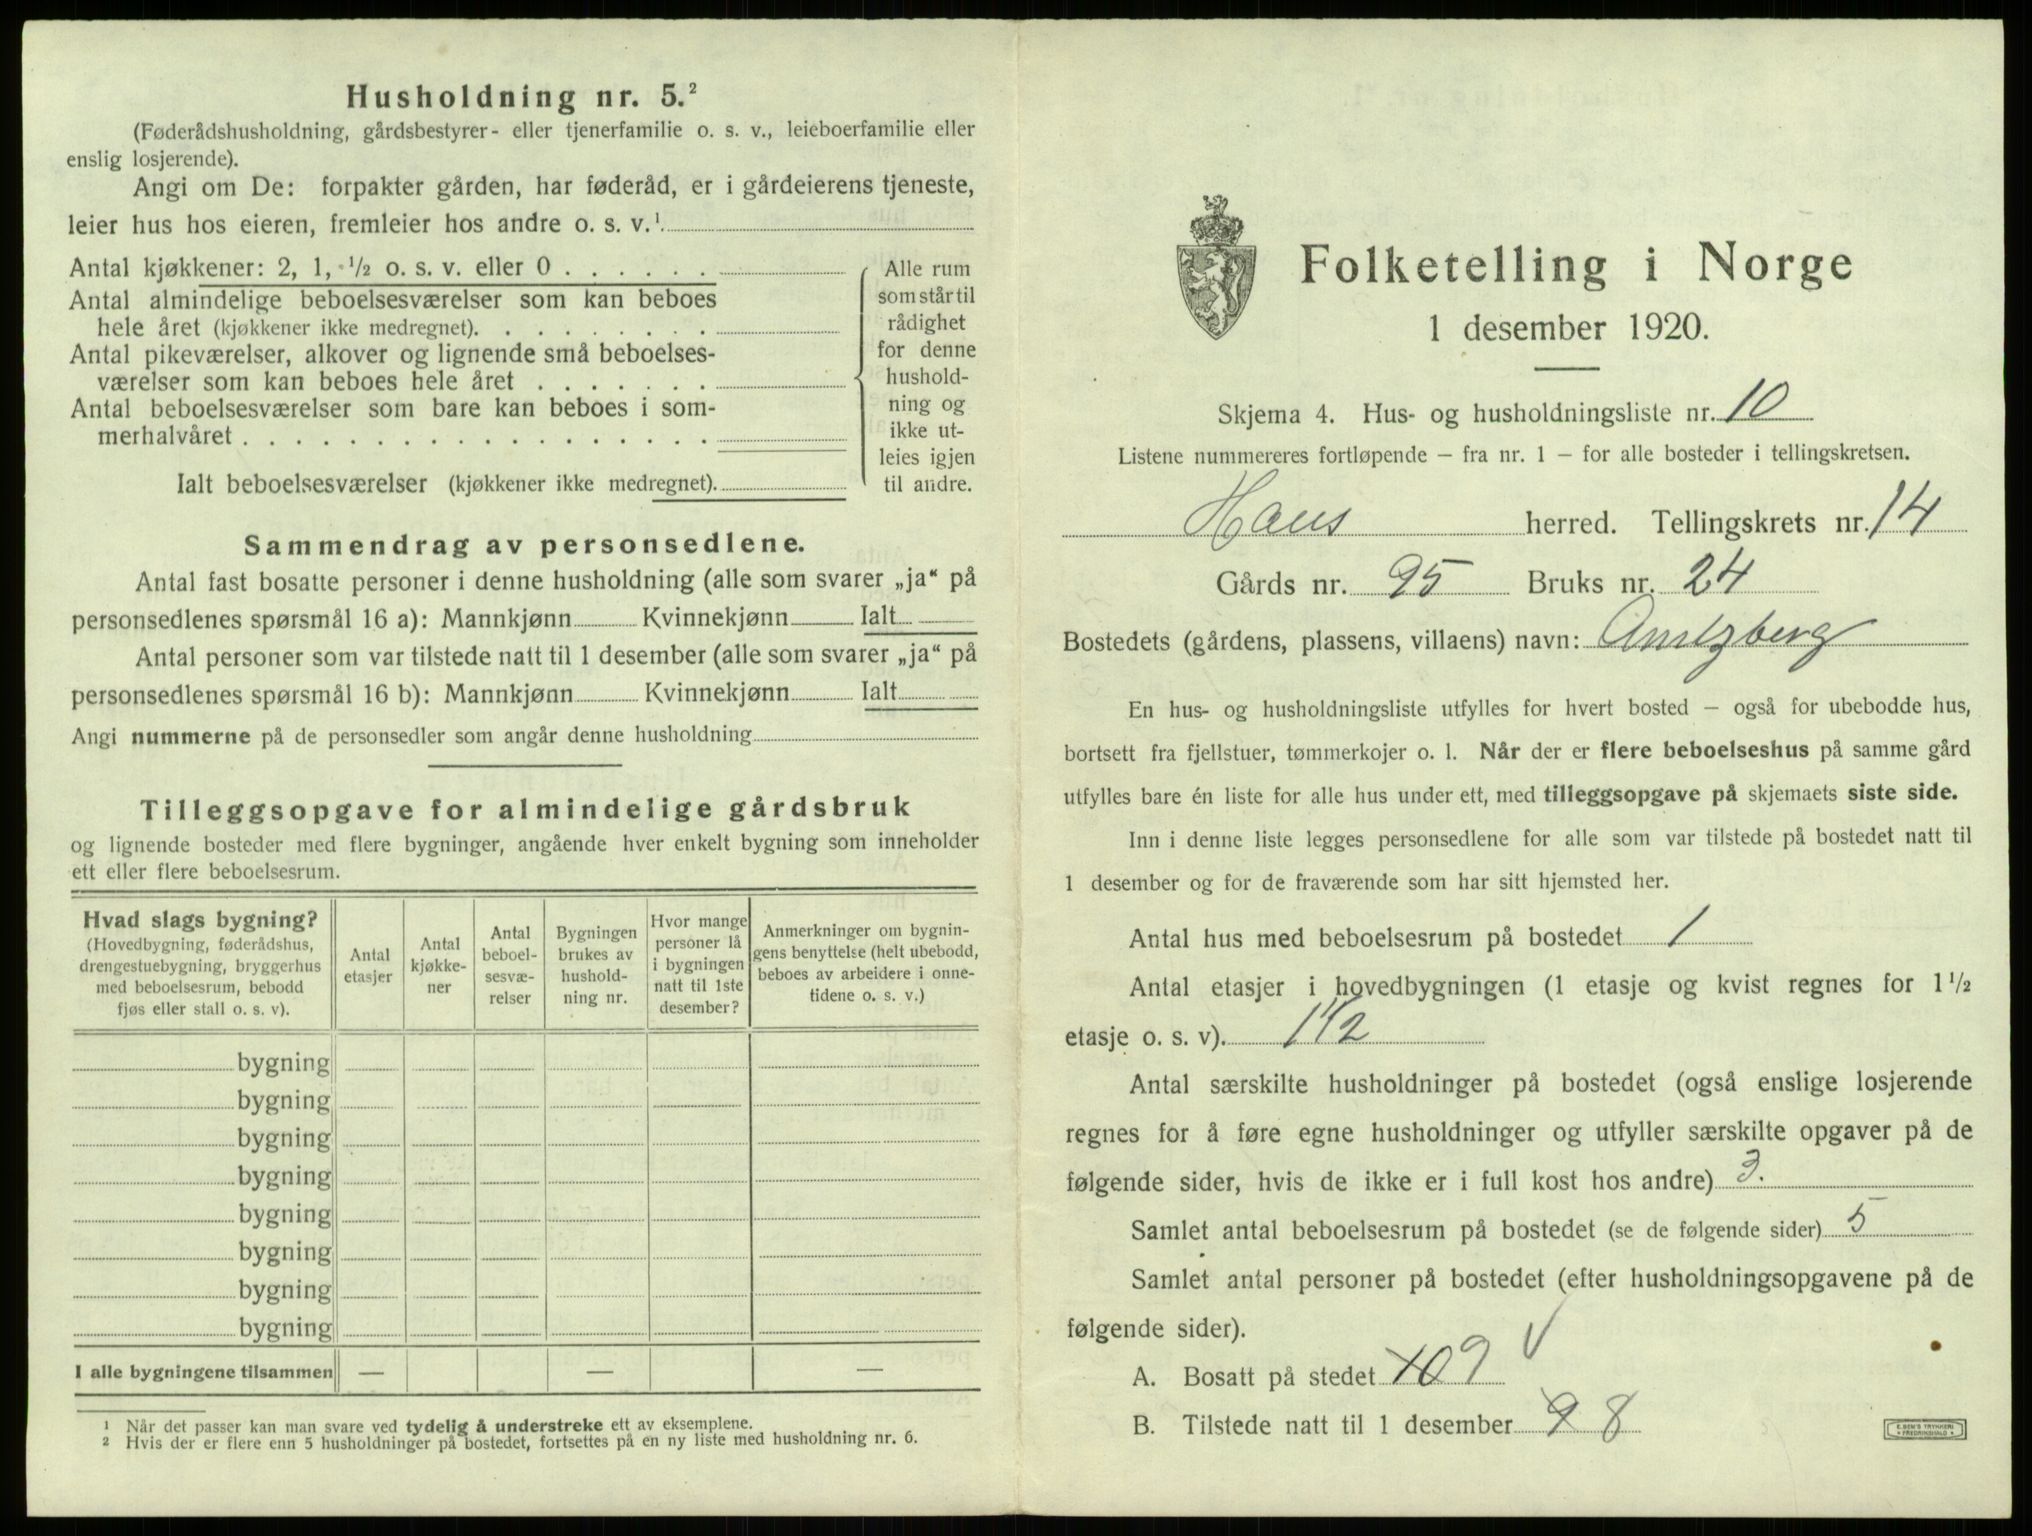 Husholdning nr. 5.²
(Føderådshusholdning, gårdsbestyrer- eller tjenerfamilie o. s. v., leieboerfamilie eller
enslig losjerende).
Angi om De: forpakter gården, har føderåd, er i gårdeierens tjeneste,
leier hus hos eieren, fremleier hos andre o. s. v.¹
Antal kjøkkener: 2, 1, ½ o. s. v. eller 0 . . . . . .
Antal almindelige beboelsesværelser som kan beboes
hele året (kjøkkener ikke medregnet). . . . . . . . .
Antal pikeværelser, alkover og lignende små beboelses-
værelser som kan beboes hele året . . . . . . .
Antal beboelsesværelser som bare kan beboes i som-
merhalvåret . . . . . . . . . . . . . . . . . .
Ialt beboelsesværelser (kjøkkener ikke medregnet).
Alle rum
som står til
rådighet
for denne
hushold-
ning og
ikke ut-
leies igjen
til andre.
Sammendrag av personsedlene.
Antal fast bosatte personer i denne husholdning (alle som svarer „ja“ på
personsedlenes spørsmål 16 a): Mannkjønn Kvinnekjønn Ialt
Antal personer som var tilstede natt til 1 desember (alle som svarer „ja“ på
personsedlenes spørsmål 16 b): Mannkjønn Kvinnekjønn Ialt
Angi nummerne på de personsedler som angår denne husholdning
Tilleggsopgave for almindelige gårdsbruk
og lignende bosteder med flere bygninger, angående hver enkelt bygning som inneholder
ett eller flere beboelsesrum.
Hvad slags bygning?
(Hovedbygning, føderådshus,
drengestuebygning, bryggerhus
med beboelsesrum, bebodd
fjøs eller stall o. s. v).
Antal
etasjer
Antal
kjøkke-
ner
Antal
beboel-
sesvæ-
relser
Bygningen
brukes av
hushold-
ning nr.
Hvor mange
personer lå
i bygningen
natt til 1ste
desember?
Anmerkninger om bygnin-
gens benyttelse (helt ubebodd,
beboes av arbeidere i onne-
tidene o. s. v.)
bygning
bygning
bygning
bygning
bygning
bygning
bygning
bygning
I alle bygningene tilsammen — — —
¹ Når det passer kan man svare ved tydelig å understreke ett av eksemplene.
² Hvis der er flere enn 5 husholdninger på bostedet, fortsettes på en ny liste med husholdning nr. 6.
Folketelling i Norge
1 desember 1920.
Skjema 4. Hus- og husholdningsliste nr. 10
Listene nummereres fortløpende — fra nr. 1 — for alle bosteder i tellingskretsen.
Haus herred. Tellingskrets nr. 14
Gårds nr. 95 Bruks nr. 24
Bostedets (gårdens, plassens, villaens) navn:
En hus- og husholdningsliste utfylles for hvert bosted — også for ubebodde hus,
bortsett fra fjellstuer, tømmerkojer o. l. Når der er flere beboelseshus på samme gård
utfylles bare én liste for alle hus under ett, med tilleggsopgave på skjemaets siste side.
Inn i denne liste legges personsedlene for alle som var tilstede på bostedet natt til
1 desember og for de fraværende som har sitt hjemsted her.
Antal hus med beboelsesrum på bostedet 1
Antal etasjer i hovedbygningen (1 etasje og kvist regnes for 1½
etasje o. s. v). 1½
Antal særskilte husholdninger på bostedet (også enslige losjerende
regnes for å føre egne husholdninger og utfyller særskilte opgaver på de
følgende sider, hvis de ikke er i full kost hos andre) 3.
Samlet antal beboelsesrum på bostedet (se de følgende sider) 5
Samlet antal personer på bostedet (efter husholdningsopgavene på de
følgende sider).
A. Bosatt på stedet 10 9 V
B. Tilstede natt til 1 desember 9 8
E. SEM'S TRYKKERI
FREDRIKSHALD